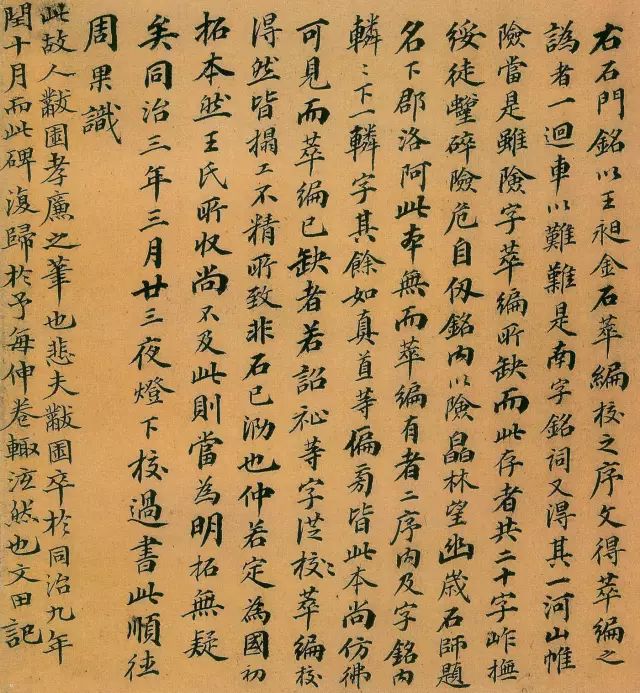 右石門銘以王昶金石萃編校之序文得萃編之
譌者一迴車以難難是南字銘詞又得其一河山帷
險當是雖險字萃編所缺而此存者共二十字岝橅
綏徒螳碎險危自仭銘內以險晶林望幽歲石師題
名下郡洛阿此本無而萃編有者二序內及字銘內
轔〻下一轔字其餘如真首等偏旁皆此本尚仿彿
可見而萃編已缺者若詔祉等字從校〻萃編校
得然皆搨工不精所致非石已泐也仲若定為國初
拓本然王氏所收尚不及此則當為明拓無疑
矣同治三年三月廿三夜燈下校過書此順德
周果識
此故人黻囯孝廉之筆也悲夫黻囯卒於同治九年
閏十月而此碑復歸於予每伸卷輙泫然也文田記